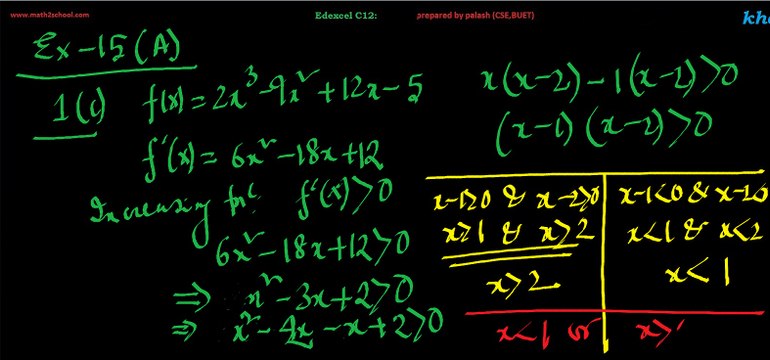 www.math2school.com Edexcel C12: prepared by palash (CSE,BUET)
Ex-15(A)
1(c) f(x) = 2x³ - 9x² + 12x - 5
f'(x) = 6x² - 18x + 12
Increasing fnc: f'(x) > 0
6x² - 18x + 12 > 0
⇒ x² - 3x + 2 > 0
⇒ x² - 2x - x + 2 > 0
x(x-2) - 1(x-2) > 0
(x-1)(x-2) > 0
x-1>0 & x-2>0
x>1 & x>2
x>2
x-1<0 & x-2<0
x<1 & x<2
x<1
x<1 or x>